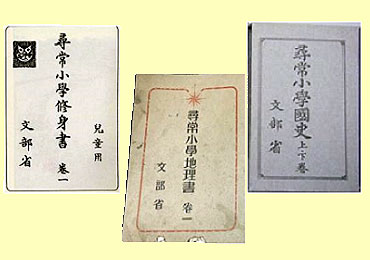 尋常小學修身書 卷一
兒童用
文部省
尋常小學地理書 卷一
文部省
尋常小學國史 上・下卷
文部省